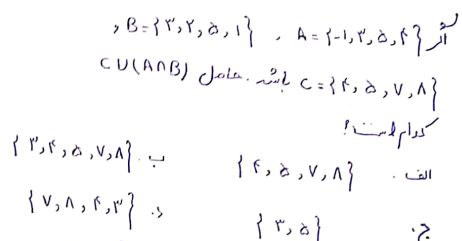 اگر A = {-۱, ۳, ۵, ۴} ، B = {۳, ۲, ۵, ۱} ,
C = {۴, ۵, ۷, ۸} باشد. حاصل C ∪ (A ∩ B)
کدام است؟
الف. {۴, ۵, ۷, ۸} ب. {۳, ۴, ۵, ۷, ۸}
ج. {۳, ۵} د. {۷, ۸, ۴, ۳}